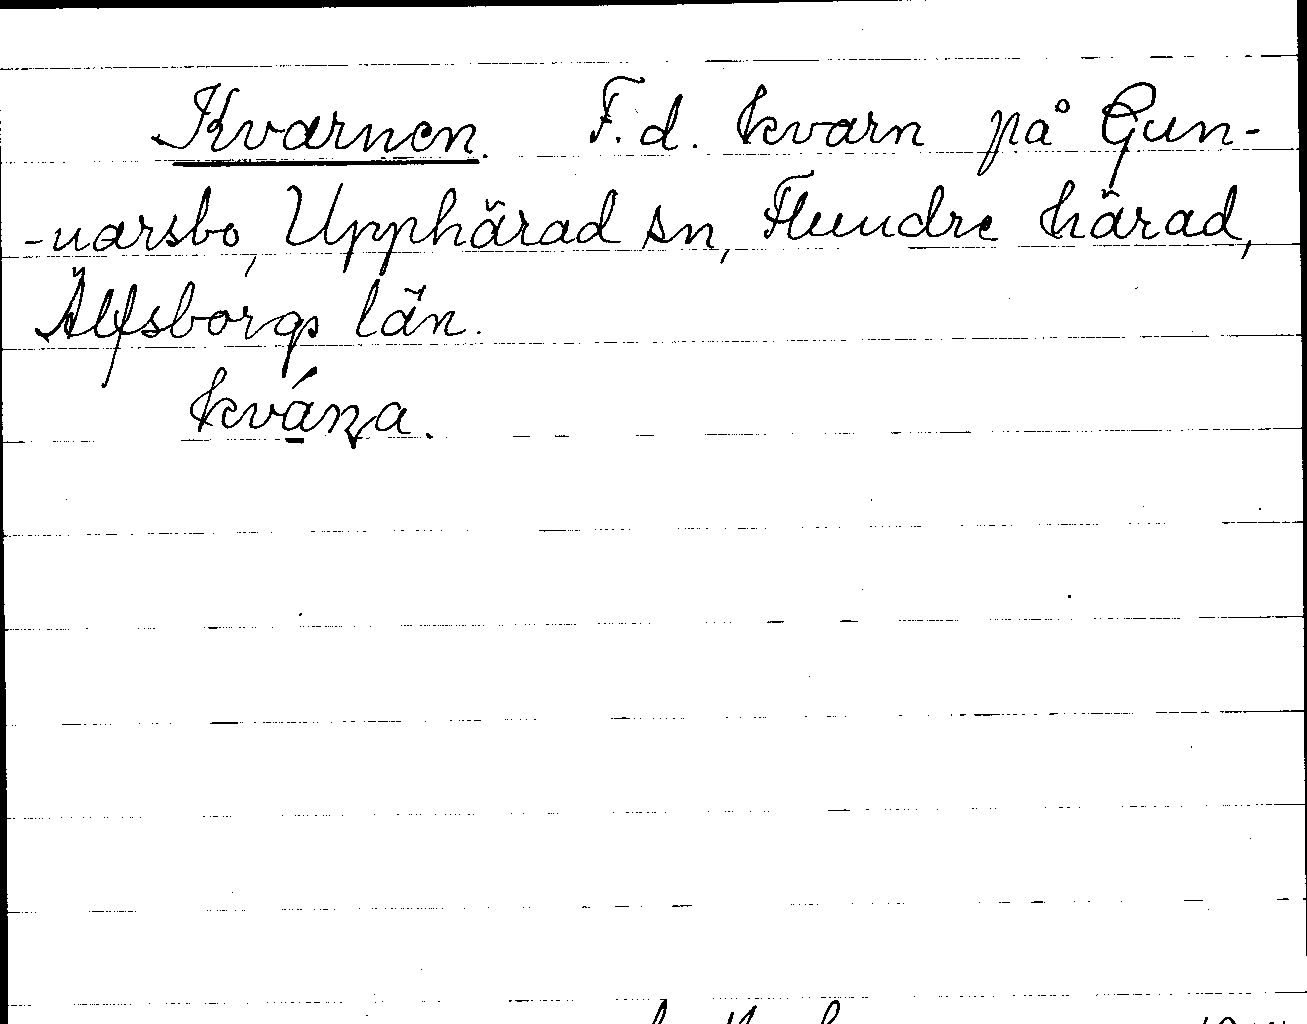 Kvarnen. F.d. kvarn på Gun-
-narsbo, Upphärad sn, Flundre härad,
Älfsborgs län.
kvá̱ɳa.